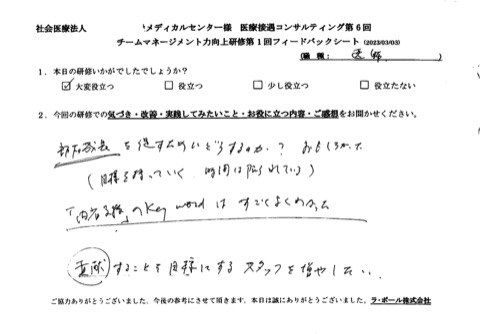 社会医療法人 メディカルセンター様 医療接遇コンサルティング第6回
チームマネージメント力向上研修第1回フィードバックシート (2023/03/03)
(職種: 医師 )
1. 本日の研修いかがでしたでしょうか?
☑ 大変役立つ □ 役立つ □ 少し役立つ □ 役立たない
2. 今回の研修での気づき・改善・実践してみたいこと・お役に立つ内容・ご感想をお聞かせください。
部下成長を促すためにどうするか? おもしろかった
(目標を持っていく、時間は限られている)
のKey wordはすごくよくわかった
貢献することを目標にするスタッフを増やしたい.
ご協力ありがとうございました。今後の参考にさせて頂きます。本日は誠にありがとうございました。ラ・ポール株式会社